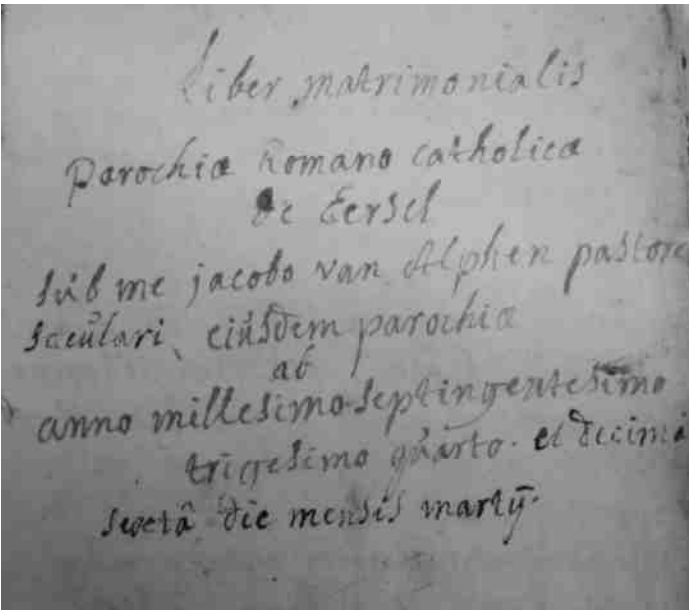 Liber matrimonialis
Parochiæ Romano catholicæ
de Eersel
sub me jacobo van Alphen pastore
sæculari, ejusdem parochiæ
ab
anno millesimo septingentesimo
trigesimo quarto. et decimâ
sextâ die mensis martÿ.